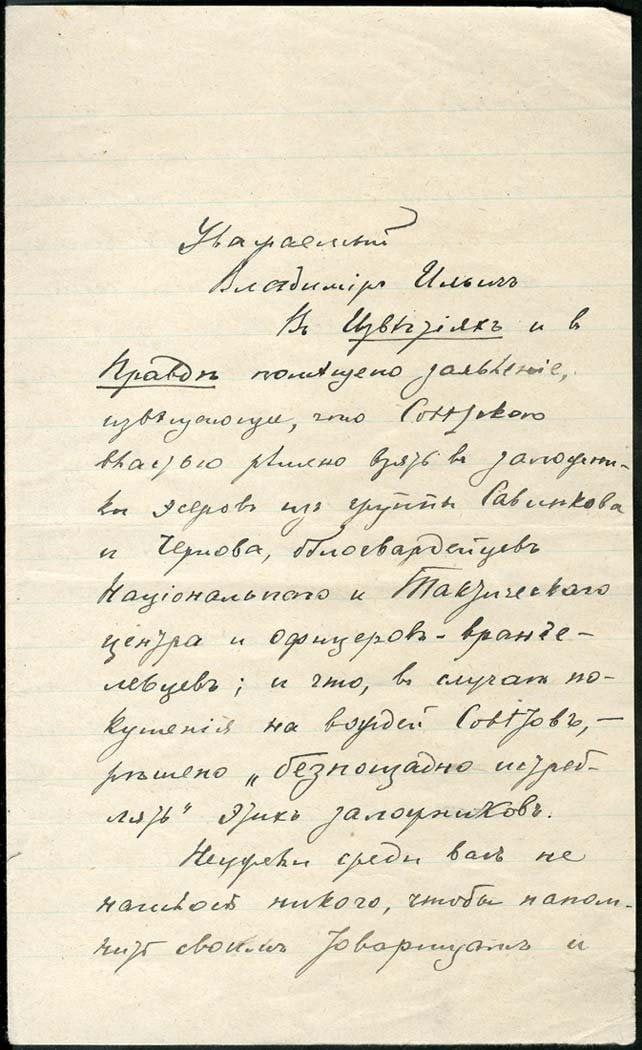 Уважаемый
Владиміръ Ильичъ
Въ Извѣстіяхъ и въ
Правдѣ помѣщено заявленіе,
извѣщающее, что Совѣтскою
властью рѣшено взять въ заложни-
ки эсеровъ изъ группы Савинкова
и Чернова, бѣлогвардейцевъ
Національнаго и Тактическаго
центра и офицеровъ-вранге-
левцевъ; и что, въ случаѣ по-
кушенія на вождей Совѣтовъ, —
рѣшено „безпощадно истреб-
лять" этихъ заложниковъ.
Неужели среди васъ не
нашлось никого, чтобы напом-
нить своимъ товарищамъ и